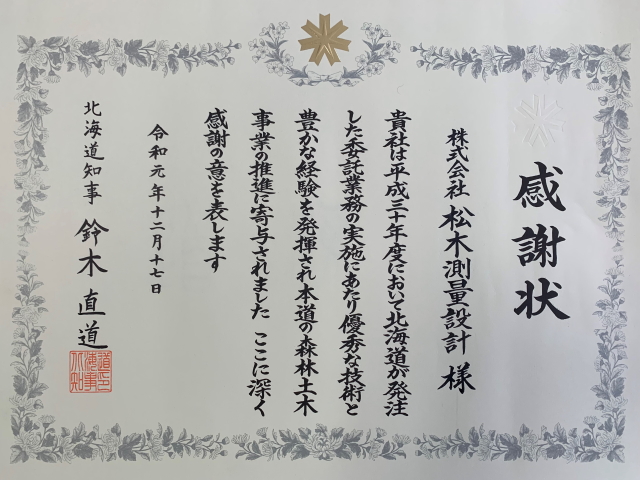 感謝状
株式会社 松木測量設計 様
貴社は平成三十年度において北海道が発注
した委託業務の実施にあたり優秀な技術と
豊かな経験を発揮され本道の森林土木
事業の推進に寄与されました ここに深く
感謝の意を表します
令和元年十二月十七日
北海道知事 鈴木直道
北海道知事之印